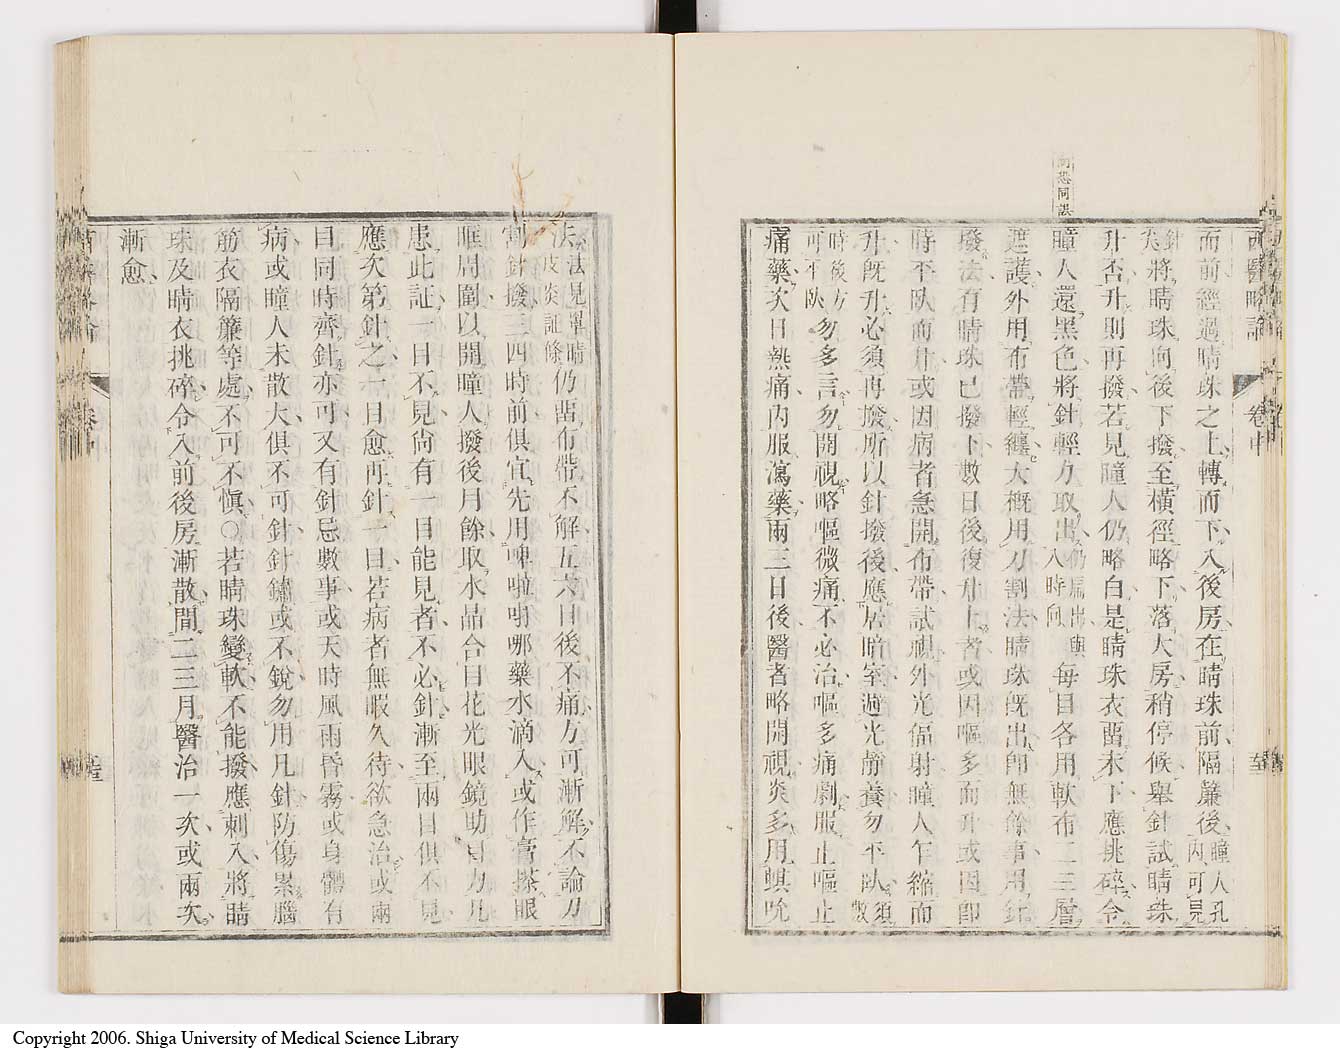 西醫略論
卷中
而前經過睛珠之上轉而下入後房在睛珠前隔簾後瞳人孔內可見
針尖將睛珠向後下撥至橫徑略下落大房稍停候舉針試睛珠
升否升則再撥若見瞳人仍略白是睛珠衣留未下應挑碎令
瞳人還黑色將針輕力取出仍扁出與入時同每目各用軟布二三層
遮護外用布帶輕纏大概用刀割法睛珠旣出卽無餘事用針
撥法有睛珠已撥下數日後復升上者或因嘔多而升或因卽
時平臥而升或因病者急開布帶試視外光偪射瞳人乍縮而
升旣升必須再撥所以針撥後應居暗室避光靜養勿平臥須數
時後方可平臥勿多言勿開視略嘔微痛不必治嘔多痛劇服止嘔止
痛藥次日熱痛內服瀉藥兩三日後醫者略開視炎多用蜞吮
向恐同誤
法法見睪睛皮炎証條仍留布帶不解五六日後不痛方可漸解不論刀
割針撥三四時前俱宜先用啤啦㖠哪藥水滴入或作膏搽眼
眶周圍以開瞳人撥後月餘取水晶合白花光眼鏡助目力凡
患此証一目不見尙有一目能見者不必針漸至兩目俱不見
應次第針之一目愈再針一目若病者無暇久待欲急治或兩
目同時齊針亦可又有針忌數事或天時風雨昏霧或身體有
病或瞳人未散大俱不可針針鏽或不銳勿用凡針防傷累腦
筋衣隔簾等處不可不愼○若睛珠變軟不能撥應刺入將睛
珠及睛衣挑碎令入前後房漸散間二三月醫治一次或兩次
漸愈
卷中